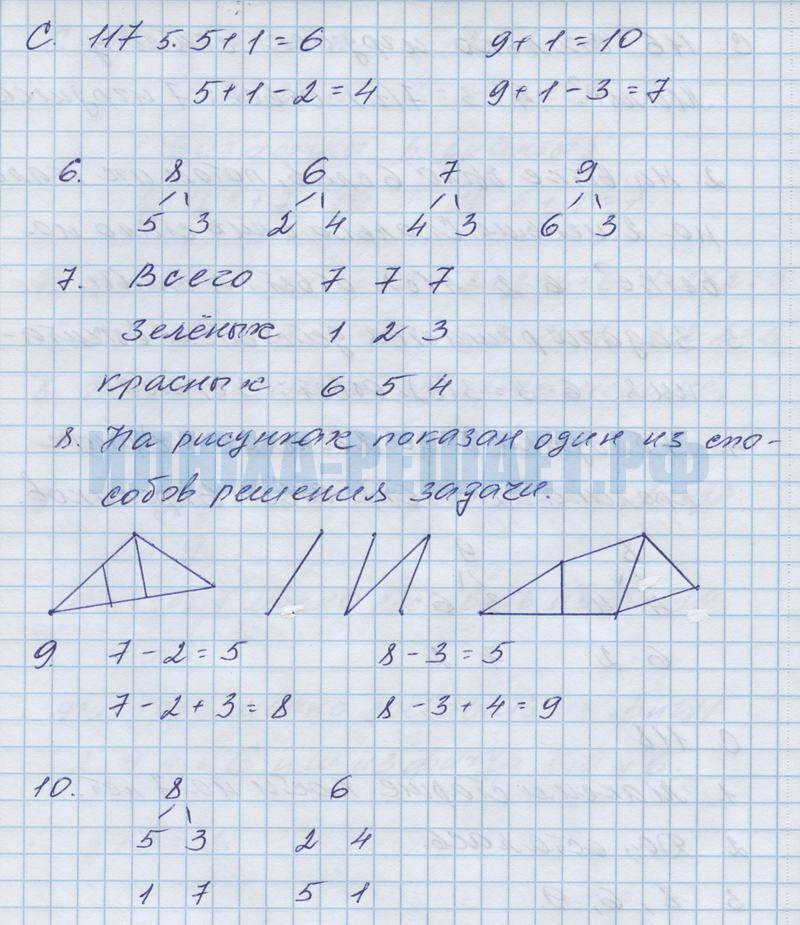 С. 117 5. 5+1=6 9+1=10
5+1-2=4 9+1-3=7
6. 8 6 7 9
5 3 2 4 4 3 6 3
7. Всего 7 7 7
Зелёных 1 2 3
красных 6 5 4
8. На рисунках показан один из спо-
собов решения задачи.
9. 7-2=5 8-3=5
7-2+3=8 8-3+4=9
10. 8 6
5 3 2 4
1 7 5 1